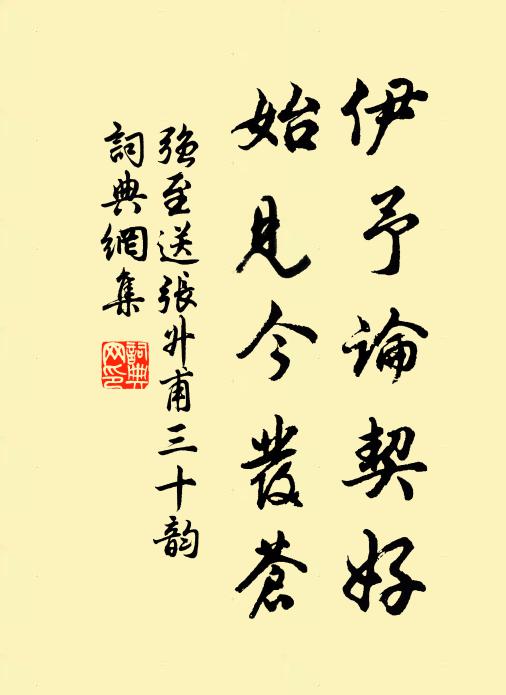 伊予論契好
始見今發蒼
强至送張升甫三十韵
詞典網集
詞典
网印